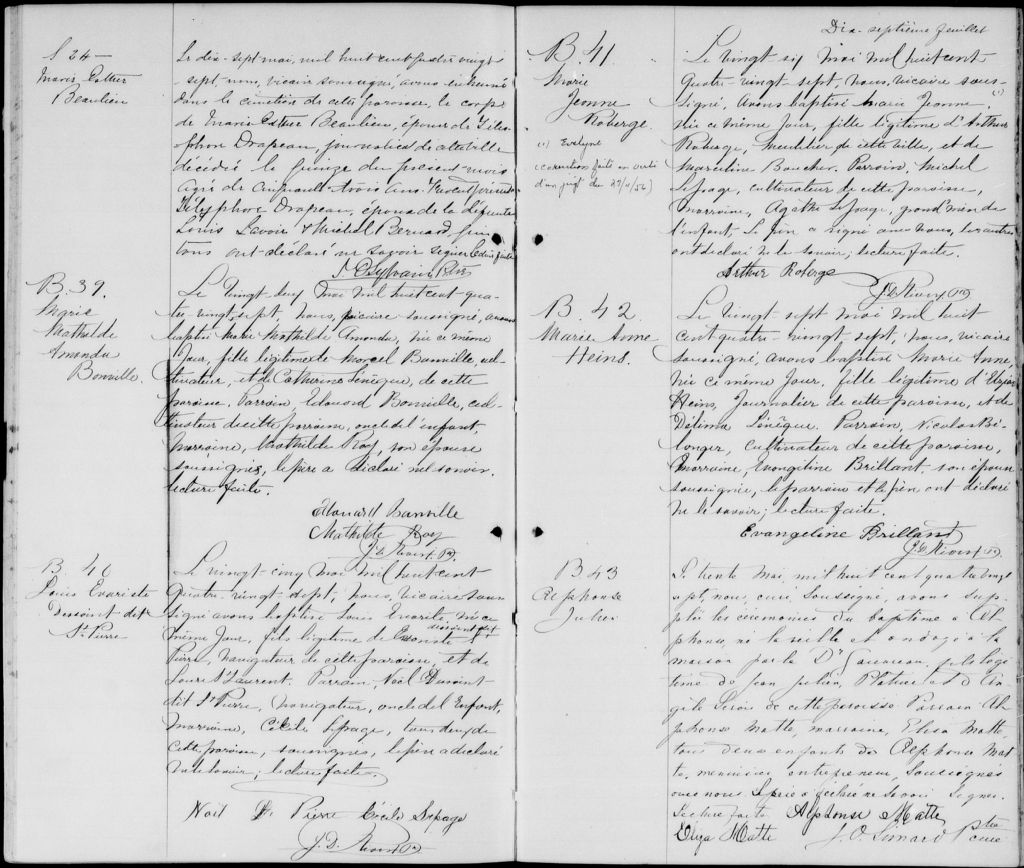 S 24
Marie Esther
Beaulieu
Le dix-sept mai, mil huit cent quatre vingt
sept, nous, vicaire soussigné, avons inhumé
dans le cimetière de cette paroisse, le corps
de Marie Esther Beaulieu, épouse de Téles-
phore Drapeau, journalier de cette ville
décédée le quinze du présent mois
agée de cinquante trois ans. Présents
Télesphore Drapeau, époux de la défunte
Louis Lavoie & Michel Bernard, qui
tous ont déclaré ne savoir signer. Lecture faite
B. 39.
Marie
Mathilde
Amanda
Banville.
Le vingt deux mai mil huit cent qua-
tre vingt sept, nous, vicaire soussigné, avons
baptisé Marie Mathilde Amanda, née ce même
jour, fille légitime de Marcel Banville, cul-
tivateur, et de Catherine Sénèque, de cette
paroisse. Parrain, Edouard Banville, cul-
tivateur de cette paroisse, oncle de l'enfant,
marraine, Mathilde Roy, son épouse
soussignés, le père a déclaré ne le savoir.
lecture faite.
Edouard Banville
Mathilde Roy
B. 40
Louis Evariste
Dessaint dit
St Pierre
Le vingt-cinq mai mil huit cent
quatre-vingt-sept, nous, vicaire sous-
signé avons baptisé Louis Evariste, né ce
même jour, fils légitime de dessaint dit St
Pierre, navigateur de cette paroisse, et de
Laure St Laurent. Parrain, Noël Dessaint
dit St Pierre, navigateur, oncle de l'enfant,
marraine, Cécile Lepage, tous deux de
cette paroisse, soussignés, le père a déclaré
ne le savoir; lecture faite.
Noël St. Pierre Cécile Lepage
Dix-septième feuillet
B. 41.
Marie
Jeanne
Roberge.
(1) Evelyne
(correction faite en vertu
d'un jugt du 22/11/56)
Le vingt six mai mil huit cent
quatre-vingt sept, nous, vicaire sous-
signé, avons baptisé Marie Jeanne, (1)
née ce même jour, fille légitime d'Arthur
Roberge, meublier de cette ville, et de
Marceline Boucher. Parrain, Michel
Lepage, cultivateur de cette paroisse,
marraine, Agathe Lepage, grand'mère de
l'enfant. Le père a signé avec nous, les autres
ont déclaré ne le savoir; lecture faite.
Arthur Roberge
B. 42.
Marie Anne
Heins.
Le vingt-sept mai mil huit
cent quatre-vingt sept, nous, vicaire
soussigné, avons baptisé Marie Anne,
née ce même jour, fille légitime d'Elzéar
Heins, journalier de cette paroisse, et de
Délima Sénèque. Parrain, Nicolas Bé-
langer, cultivateur de cette paroisse,
marraine, Evangéline Brillant son épouse
soussignée, le parrain et le père ont déclaré
ne le savoir; lecture faite.
Evangeline Brillant
B. 43
Alphonse
Julien
Le trente mai, mil huit cent quatre vingt
sept, nous, curé soussigné, avons sup-
plée les cérémonies du baptême à Al-
phonse, né la veille et ondoyé à la
maison par le Dr fils légi-
time de Jean Julien, et d'An-
gèle de cette paroisse. Parrain Al-
phonse Matte, marraine, Eliza Matte,
tous deux enfants de Alphonse Mat-
te, menuisier, entrepreneur, soussignés
avec nous. Le père a déclaré ne savoir signer.
Lecture faite Alphonse Matte
Eliza Matte J. O. Simard Ptre
Curé